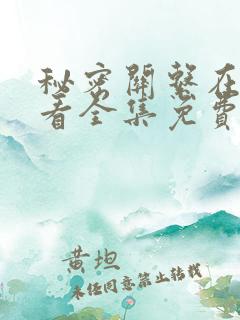 秘密關繫在
看全集免費
黄坦
未经同意禁止转载